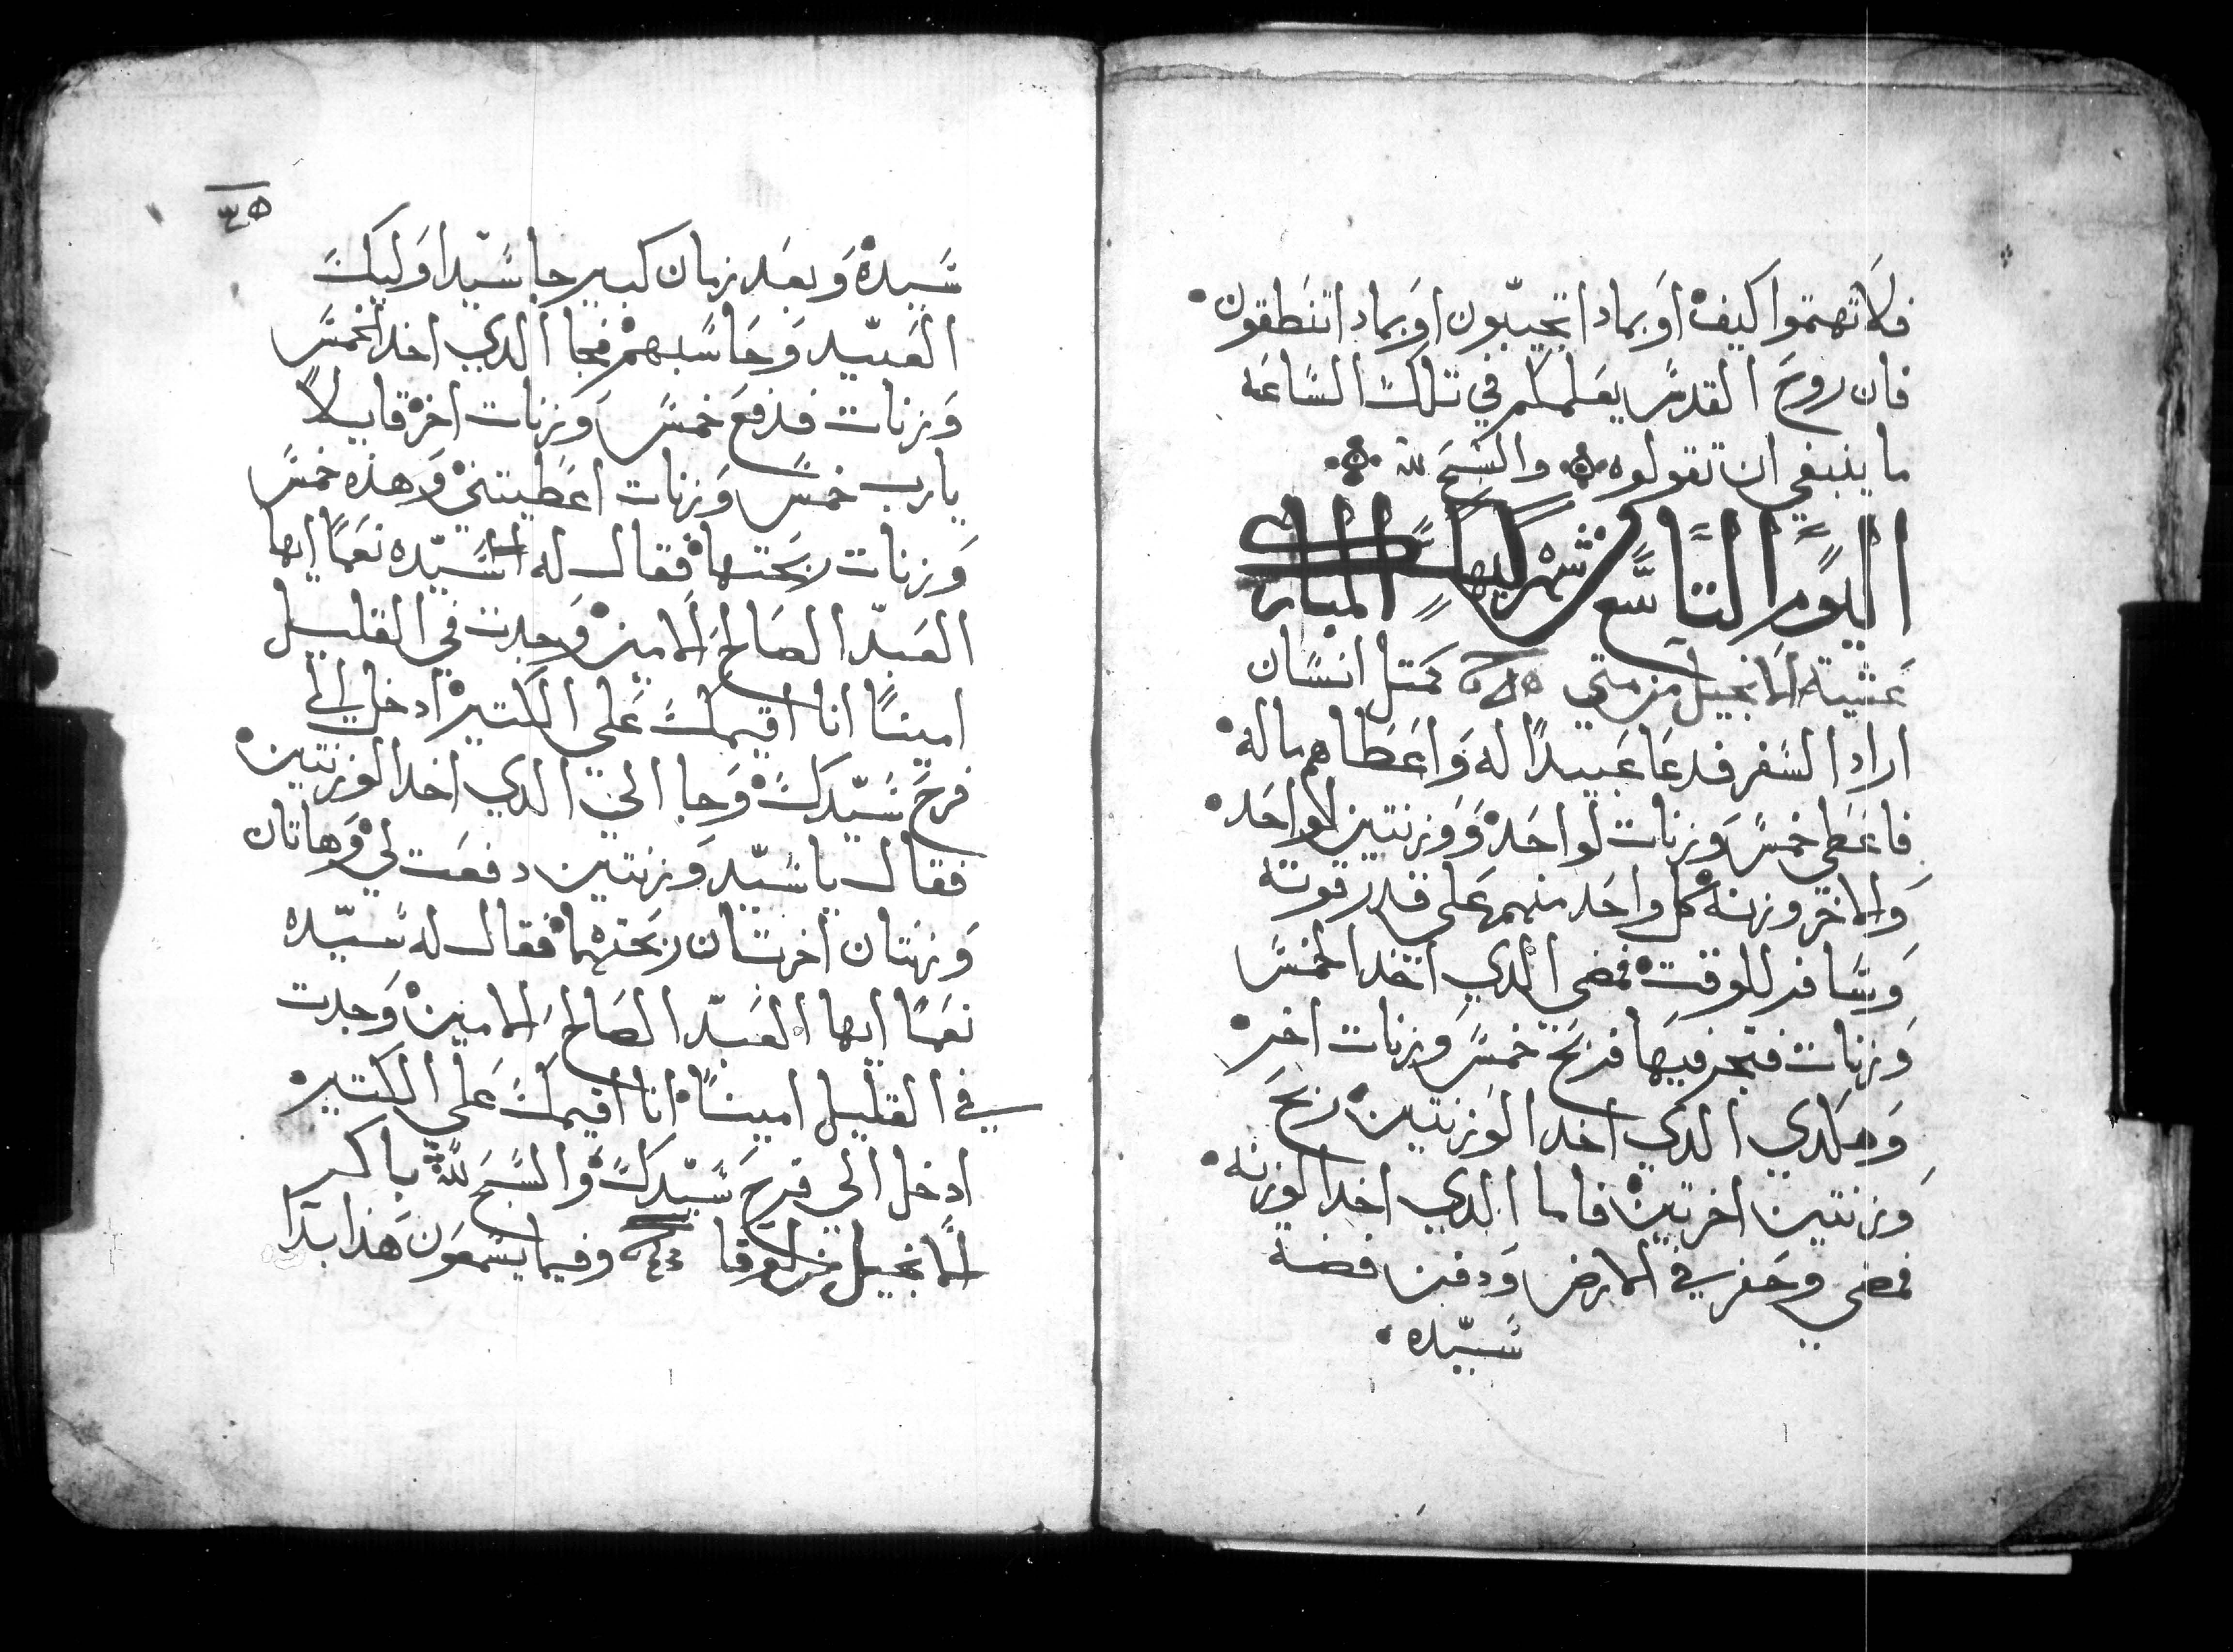 فلا تهتموا كيف او بمادا تجيبون او بمادا تنطقون
فان روح القدس يعلمكم في تلك الساعه
ما ينبغي ان تقولوه والسبح لله
اليوم التاسع شهر كيهك المبارك
عشية الانجيل من متي كمتل انسان
اراد السفر فدعا عبيدا له واعطاهم ماله
فاعطي خمس وزنات لواحد ووزنتين لاواحد
والاخر وزنه كل واحد منهم علي قدر قوته
وسافر للوقت فمضي الدي اخد الخمس
وزنات فتجر فيها فربح خمس وزنات اخر
وهكدي الدي اخد الوزنتين ربح
وزنتين اخرتين فاما الدي اخد الوزنه
فمضي وحفر في الارض ودفن فضة
سيده
سيده وبعد زمان كبير جا سيد اوليك
العبيد وحاسبهم فجا الدي اخد الخمس
وزنات فدفع خمس وزنات اخر قايلا
يارب خمس وزنات اعطيتني وهذه خمس
وزنات ربحتها فقال له سيده نعما ايها
العبد الصالح الامين وجدت في القليل
امينا انا اقيمك علي الكتير ادخل الي
فرح سيدك وجا الي الدي اخد الوزنتين
فقال يا سيد وزنتين دفعت لي وهاتان
وزنتان اخرتان ربحتهما فقال له سيده
نعما ايها العبد الصالح الامين وجدت
في القليل امينا انا اقيمك علي الكتير
ادخل الي فرح سيدك والسبح لله باكر
الانجيل من لوقا وفيما يسمعون هذا بدا